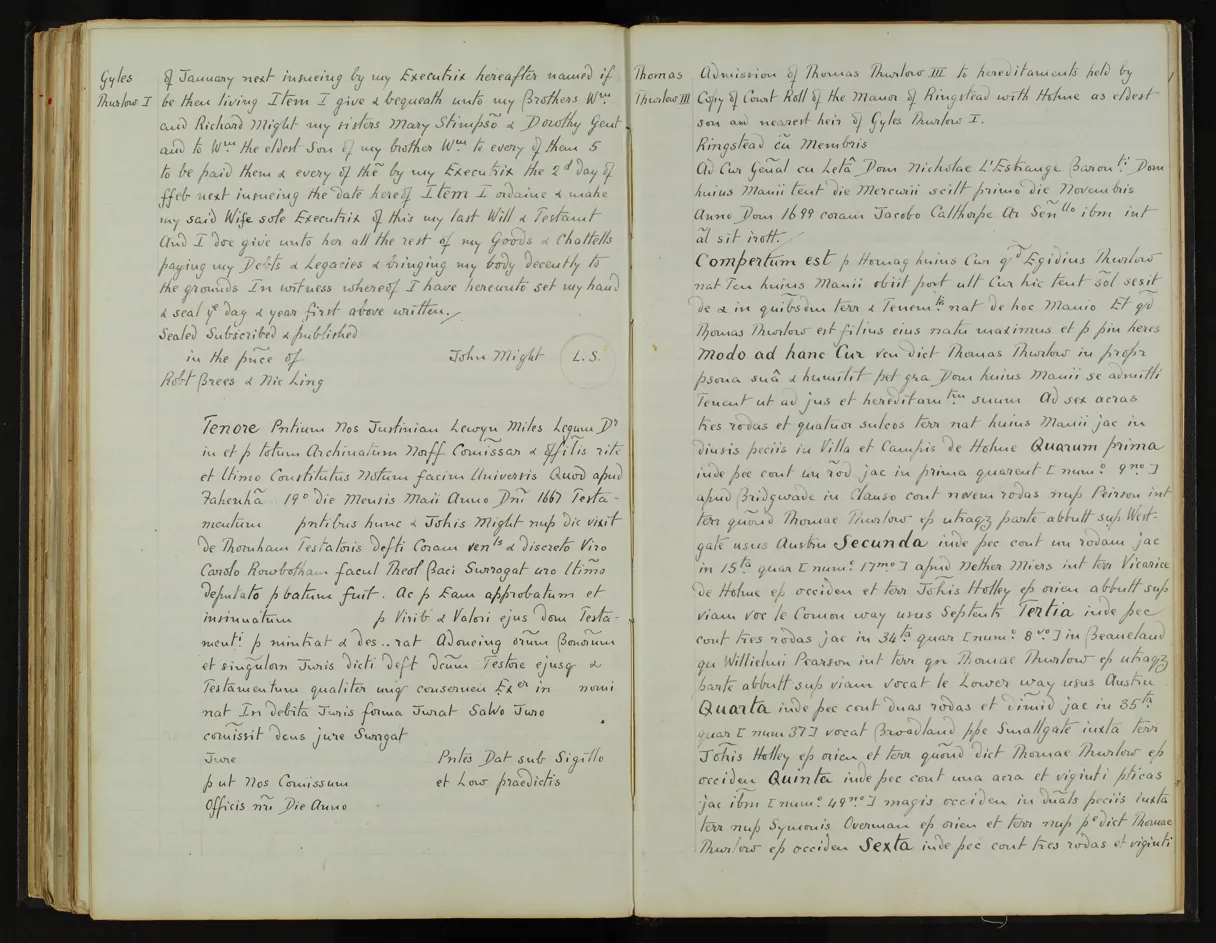 Gyles
Thurlow I
of January next insueing by my Executrix hereafter named if
be then living Item I give & bequeath unto my Brothers Wm
and Richard Might my sisters Mary Stimpsō & Dorothy Gent
and to Wm the eldest Son of my brother Wm to every of them 5
to be paid them & every of thē by my Executrix the 2d day of
ffeb next insueing the date hereof Item I ordaine & make
my said Wife sole Executrix of this my last Will & Testamt
And I doe give unto her all the rest of my Goods & Chattells
paying my Debts & Legacies & bringing my body decently to
the grounds In witness whereof I have hereunto set my hand
& seal ye day & year first above written.
Sealed Subscribed & published
in the pñce of John Might L.S.
Robt Brees & Nic Ling
Tenore Pntium Nos Justinian Lewyn Miles Legum Dr
in et p totum Archinatum Norff Com̃issar & offitis rite
et ltimo Constitutus Notum facim Universis Quod apud
Fakenhā 19o die Mensis Maii Anno Dñi 1667 Testa-
mentum pntibus hunc & Johis Might nup dic vixit
de Thornham Testatoris defti Coram venls & discreto Viro
Carolo Rowbotham facul Theol Baci Surrogat uro ltim̃o
deputato pbatum fuit. Ac p Eam approbatum et
insinuatum p Virib & Valori ejus dom Testa-
menti p mintrat & des..rat Adoneing orūm Bonorum
et singulorn Juris dicti deft dcum Testore ejusq &
Testamentum qualiter unq consernen Exer in nomi
nat In debita Juris forma Jurat Salvo Juro
com̃issit dcus jure Surrgat
Jure Pntes Dat sub Sigillo
p ut Nos Com̃issum et Low praedictis
Officis nr̃i Die Anno
Thomas
Thurlow III
Admission of Thomas Thurlow III to hereditaments held by
Copy of Court Roll of the Manor of Ringstead with Holme as eldest
son and nearest heir of Gyles Thurlow I.
Ringstead cū Membris
Ad Cur Geñal cu Letâ Dom Nicholae L'Estrange Baronti Dom
huius Manii tent die Mercurii scilt primo die Novembris
Anno Dom 1699 coram Jacobo Calthorpe Ar Señllo ibm int
āl sit irott.
Compertum est p Homag huius Cur qd Egidius Thurlow
nat Ten huius Manii obiit post ult Cur hic tent s̄ol sesit
de & in quibsdm terr & Tenemtis nat de hoc Manio Et qd
Thomas Thurlow est filius eius natu maximus et p pin heres
Modo ad hanc Cur ven dict Thomas Thurlow in propr
psona suâ & humilit pet gra Dom huius Manii se admitti
Tenent ut ad jus et hereditamtm suum Ad sex acras
tres rodas et quatuor sulcos terr nat huius Manii jac in
diusis peciis in Villa et Campis de Holme Quarum prima
inde pec cont un rod jac in prima quarent [numo 9no]
apud Bridgwade in Clauso cont novem rodas nup Peirson int
terr quōnd Thomae Thurlow ep utraqz parte abbutt sup West-
gate usus Austru Secunda inde pec cont un rodam jac
in 15ta quar [numo 17mo] apud Nether Miers int terr Vicarice
de Holme ep occiden et terr Johis Holley ep orien abbutt sup
viam voc le Comon way usus Septentr Tertia inde pec
cont tres rodas jac in 34ta quar [numo 8vo] in Beaneland
qu Willielmi Pearson int terr qn Thomae Thurlow ep utraqz
parte abbutt sup viam vocat le Lower way usus Austru
Quarta inde pec cont duas rodas et dimid jac in 35ta
quar [num 37] vocat Broodland ppe Smallgate iuxta terr
Johis Holley ep orien et terr quōnd dict Thomae Thurlow ep
occiden Quinta inde pec cont una acra et viginti pticas
jac ibm [numo 49no] magis occiden in duals peciis iuxta
terr nup Symonis Overman ep orien et terr nup pe dict Thomae
Thurlow ep occiden Sexta inde pec cont tres rodas et viginti